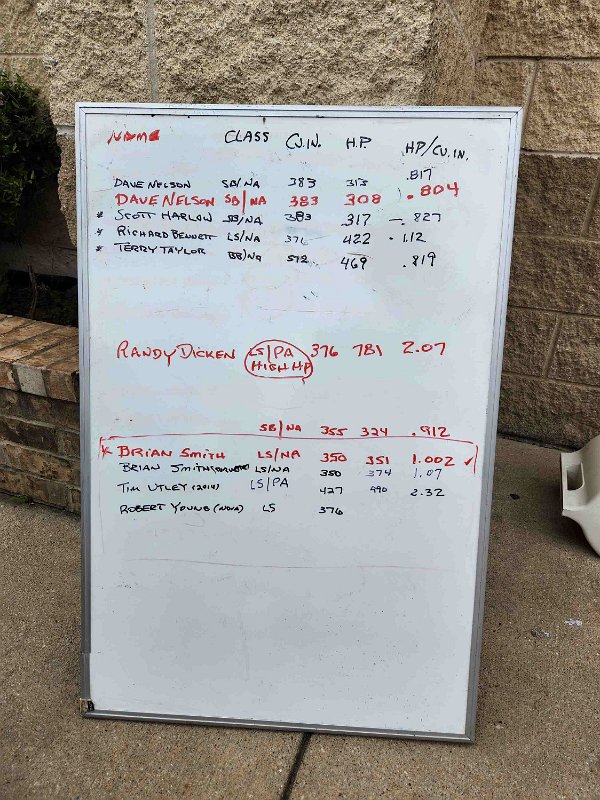 NAME CLASS CU.IN. H.P. HP/CU.IN.
DAVE NELSON SB/NA 383 313 .817
DAVE NELSON SB/NA 383 308 .804
* SCOTT HARLOW SB/NA 383 317 - .827
* RICHARD BENNETT LS/NA 376 422 . 1.12
* TERRY TAYLOR BB/NA 572 469 .819
RANDY DICKEN LS/PA 376 781 2.07
HIGH HP
SB/NA 355 324 .912
* BRIAN SMITH LS/NA 350 351 1.002 ✓
BRIAN SMITH LS/NA 350 374 1.07
TIM UTLEY (2014) LS/PA 427 990 2.32
ROBERT YOUNG (NOVA) LS 376